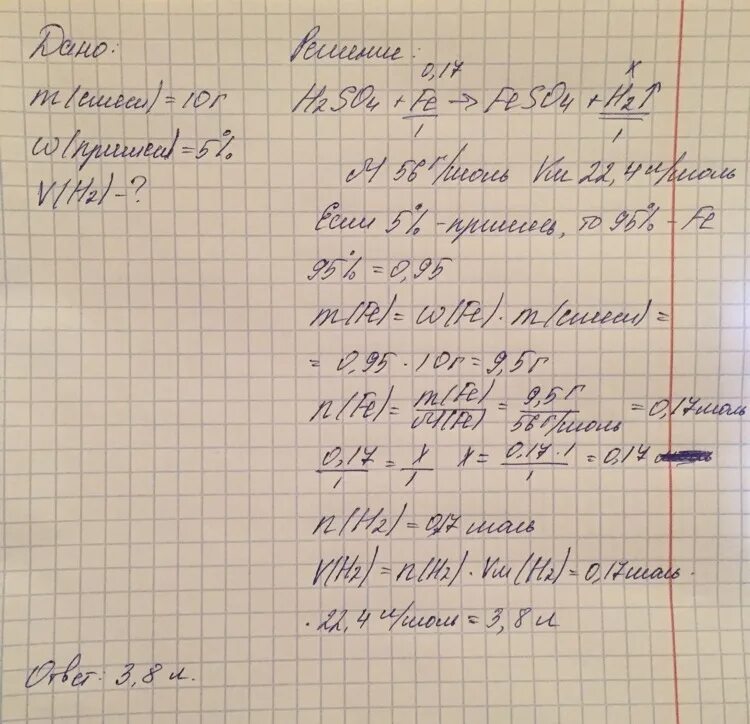 Дано:
m(смеси) = 10 г
ω(примеси) = 5%
V(H2) - ?
Решение:
0,17 x
H2SO4 + Fe → FeSO4 + H2↑
1 1
M 56 г/моль Vm 22,4 л/моль
Если 5% - примесь, то 95% - Fe
95% = 0,95
m(Fe) = ω(Fe) · m(смеси) =
= 0,95 · 10 г = 9,5 г
n(Fe) = m(Fe)/M(Fe) = 9,5 г/56 г/моль = 0,17 моль
0,17/1 = x/1 x = 0,17 · 1/1 = 0,17
n(H2) = 0,17 моль
V(H2) = n(H2) · Vm(H2) = 0,17 моль ·
· 22,4 л/моль = 3,8 л
Ответ: 3,8 л.